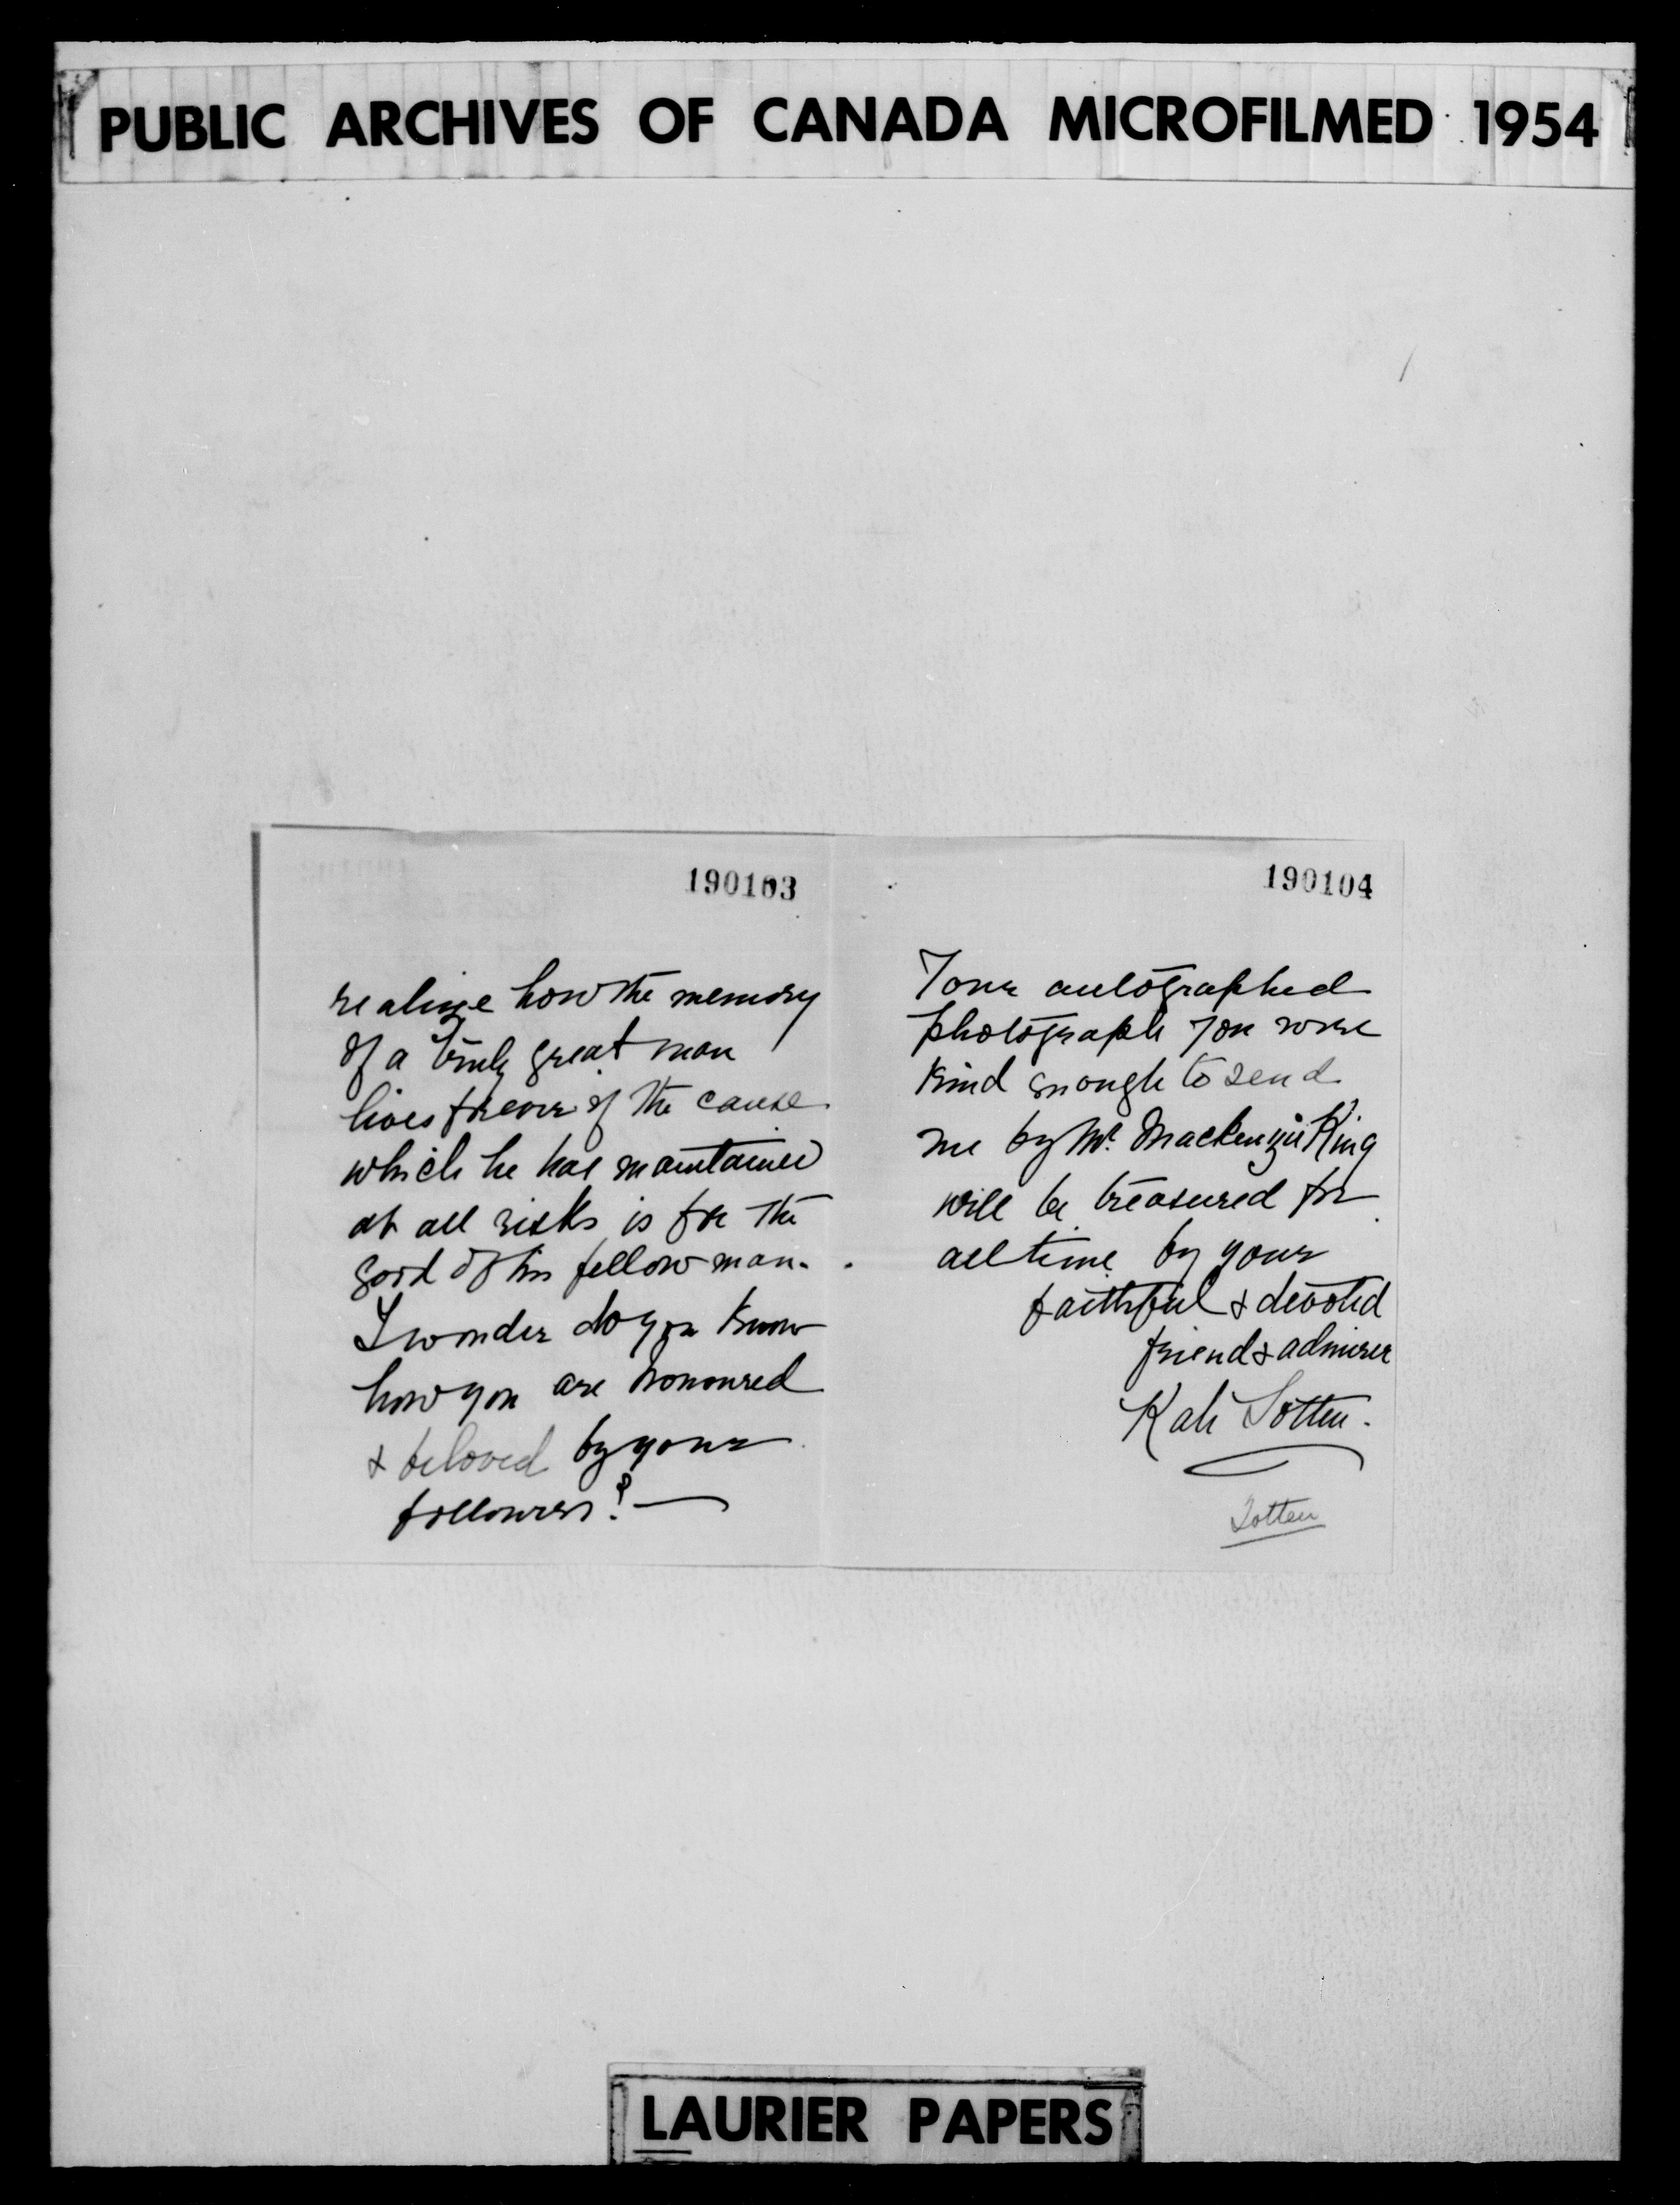 PUBLIC ARCHIVES OF CANADA MICROFILMED 1954
190103
realize how the memory
of a truly great man
lives forever if the cause
which he has maintained
at all risks is for the
good of his fellow man.
I wonder do you know
how you are honoured
& beloved by your
followers? —
190104
Your autographed
photograph you were
kind enough to send
me by Mr. Mackenzie King
will be treasured for
all time by your
faithful & devoted
friend & admirer
Totten.
Totten
LAURIER PAPERS